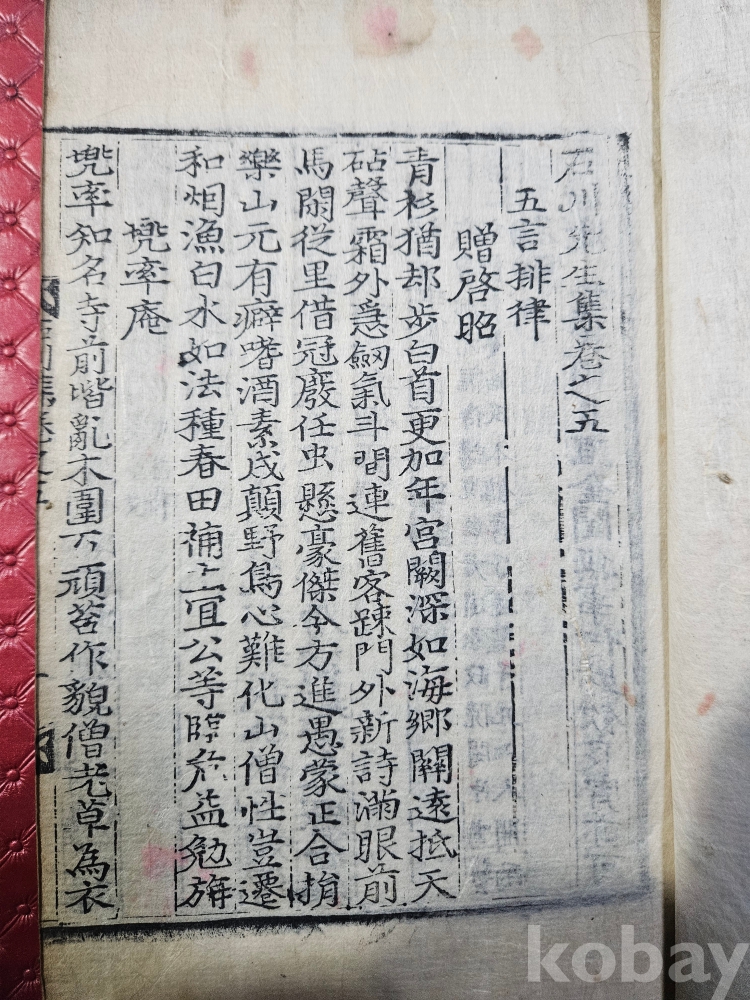 石川先生集卷之五
五言排律
贈啓昭
青衫猶却步白首更加年宮闕深如海鄕關遠抵天
砧聲霜外急劒氣斗間連舊客踈門外新詩滿眼前
馬閑從里借冠廢任虫懸豪傑今方進愚蒙正合捐
樂山元有癖嗜酒素成顚野鳥心難化山僧性豈遷
和烟漁白水如法種春田補上宜公等臨危益勉旃
兠率庵
兠率知名寺前堦亂木圍石頑苔作貌僧老草為衣
kobay